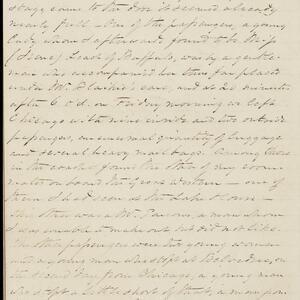 stage came to the door it seemed already
nearly full. One of the passengers, a young
lady whom I afterward found to be Miss
of Buffalo, was by a gentle-
man who accompanied her thus far placed
under Mr. care, and at 20 minutes
after 6 o'c. on Friday morning we left
Chicago with nine inside and two outside
passengers, an unusual quantity of luggage
and several heavy mail bags. Among those
in the coach I found the of my room
mates on board the Great Western — one of
them I had seen at the Lake House —
The other was a Mr. Parsons, a man whom
I was unable to make out but did not like.
The other passengers were two young women
and a young man who slept at Belvidere, on
the second from Chicago, a young man
who a little short of that, a man from